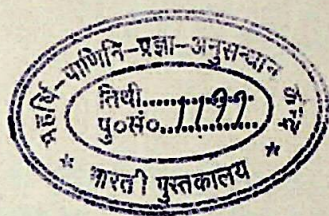 महर्षि-पाणिनि-प्रज्ञा-अनुसन्धान केन्द्र
तिथी..................
पु०सं०..1191..
* भारती पुस्तकालय *